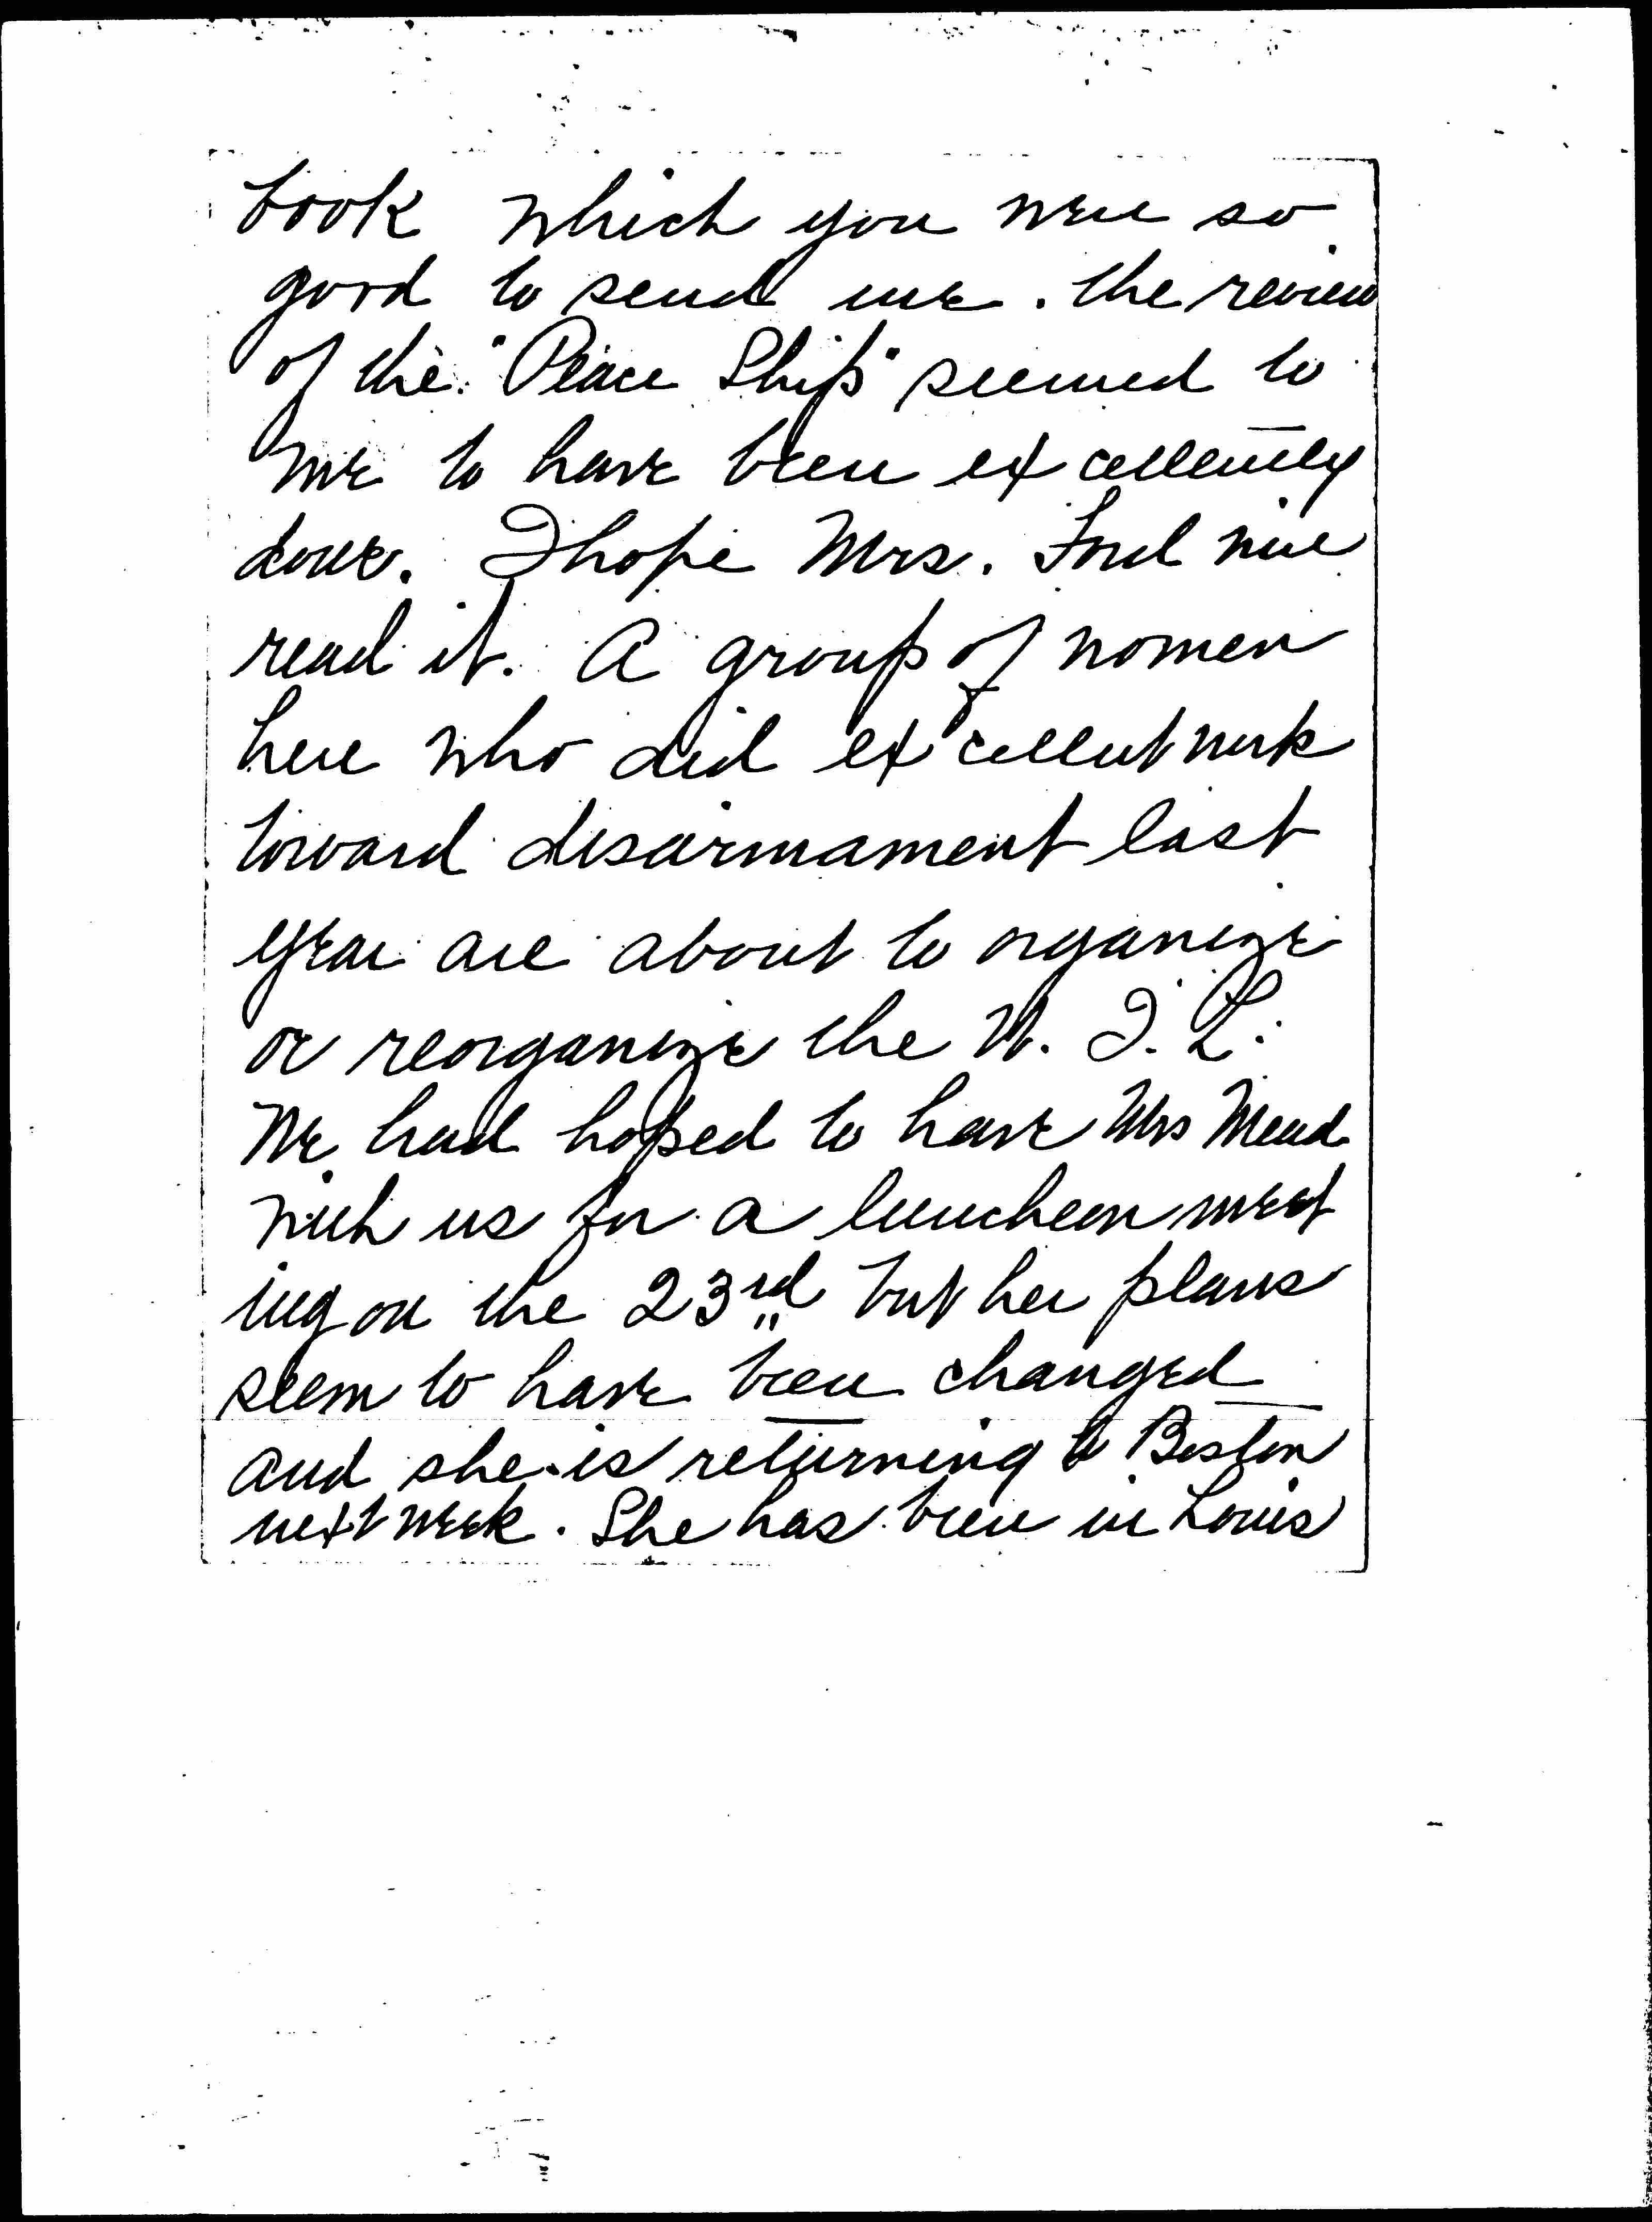 book which you were so
good to send me. The review
of the "Peace Ship" seemed to
me to have been excellently
done. I hope Mrs. Ford will
read it. A group of women
here who did excellent work
toward disarmament last
year are about to organize
or reorganize the W. I. L.
We had hoped to have Mrs Mead
with us for a luncheon meet
ing on the 23rd but her plans
seem to have been changed
and she is returning to Boston
next week. She has been in Louis